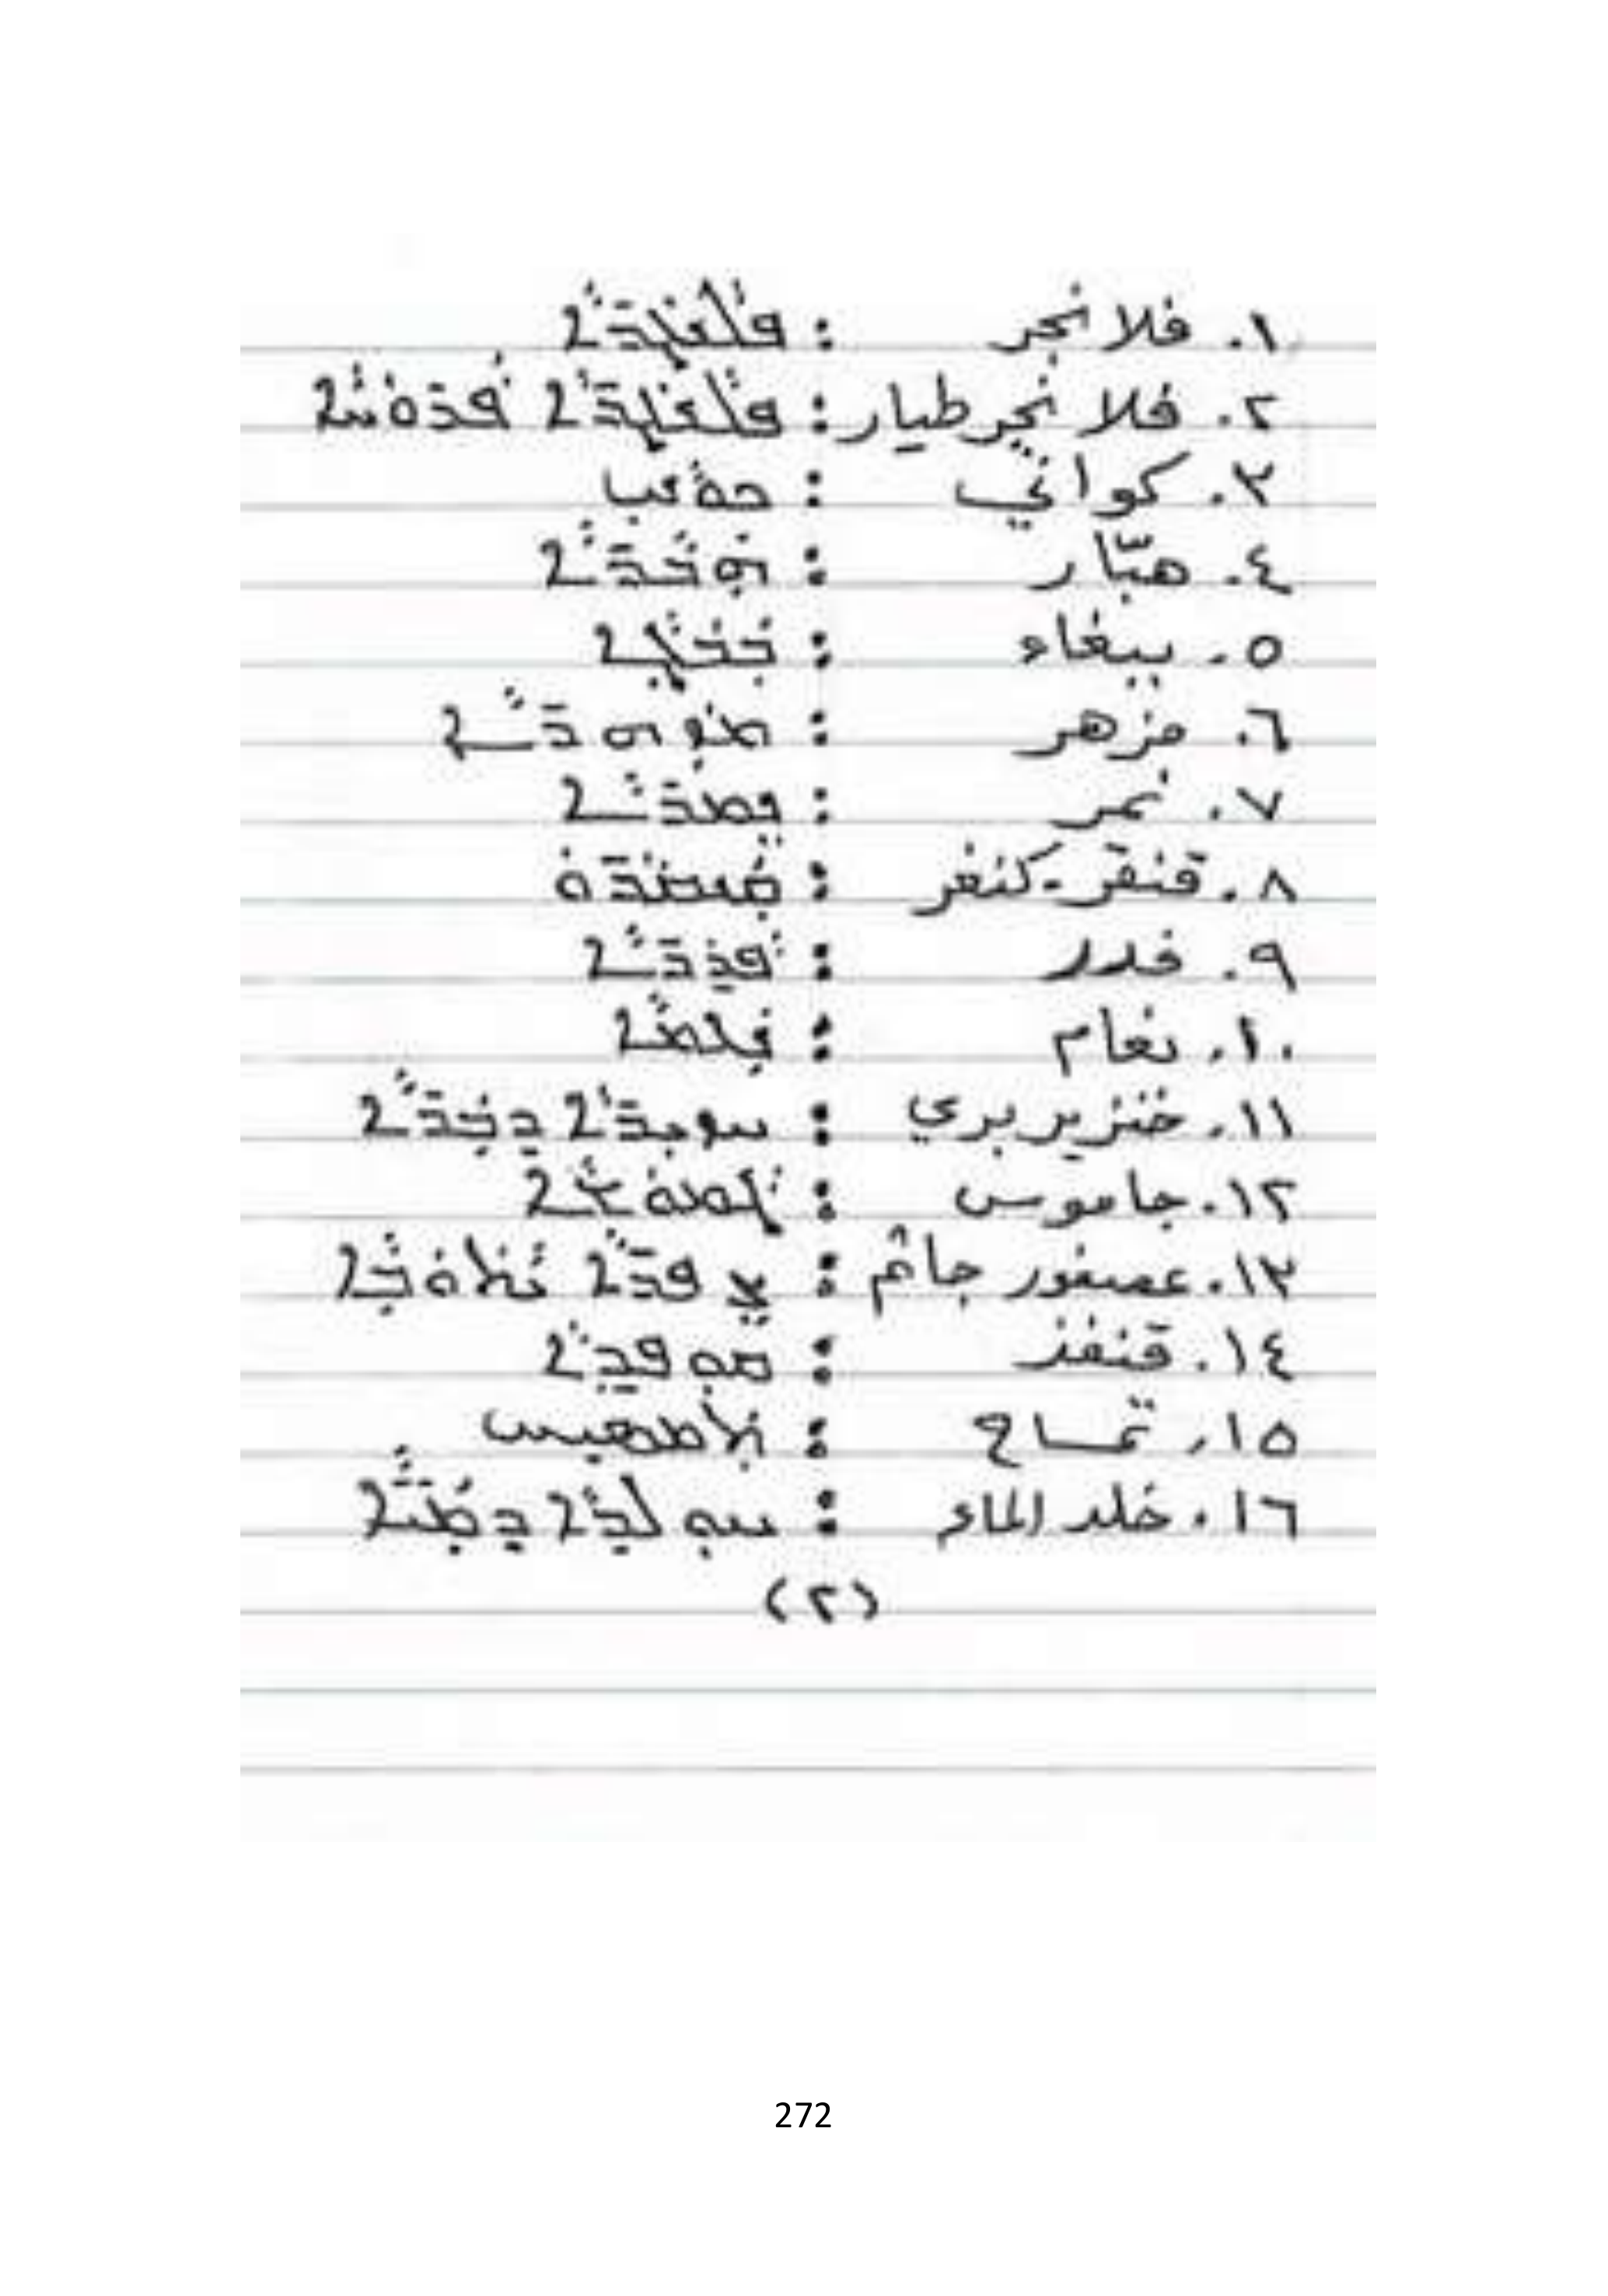 ١. فلانجر : ܦܠܢܓܪܐ
٢. فلانجر طيار : ܦܠܢܓܪܐ ܦܪܘܚܐ
٣. كواني :
٤. هبّار : ܗܘܒܪܐ
٥. ببغاء : ܒܒܓܐ
٦. مزهر : ܡܙܗܪܐ
٧. نمر : ܢܡܪܐ
٨. قنقر - كنغر :
٩. فدر : ܦܕܪܐ
١٠. نعام :
١١. خنزير بري : ܚܙܝܪܐ ܕܒܪܐ
١٢. جاموس : ܓܡܘܫܐ
١٣. عصفور جاثم : ܨܦܪܐ
١٤. قنفذ : ܩܘܦܕܐ
١٥. تمساح :
١٦. خلد الماء : ܚܘܠܕܐ ܕܡܝܐ
(٢)
272